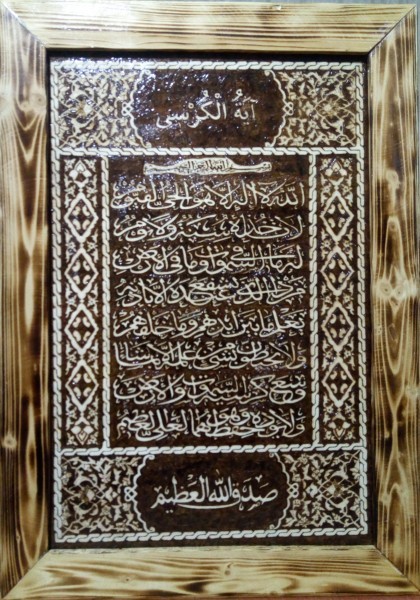 آيَةُ الْكُرْسِي
بسم الله الرحمن الرحيم
الله لا إله إلا هو الحي القيوم
لا تأخذه سنة ولا نوم
له ما في السموات وما في الأرض
من ذا الذي يشفع عنده إلا بإذنه
يعلم ما بين أيديهم وما خلفهم
ولا يحيطون بشيء من علمه إلا بما شاء
وسع كرسيه السموات والأرض
ولا يؤده حفظهما وهو العلي العظيم
صَدَقَ اللهُ الْعَظِيم